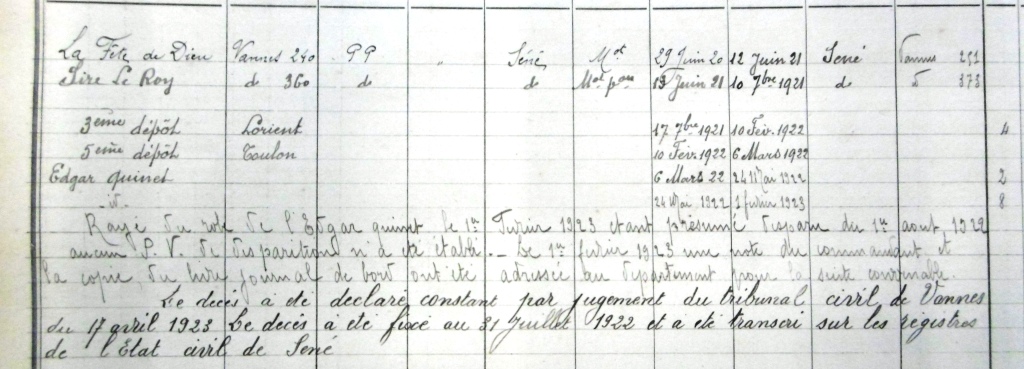 La Fête de Dieu Vannes 240 PP " Séné Mot 29 Juin 20 12 Juin 21 Séné Vannes 251
Sire Le Roy d 360 d d Mot pau 13 Juin 21 10 7bre 1921 d d 373
3eme dépôt Lorient 17 7bre 1921 10 Fév. 1922 4
5eme dépôt Toulon 10 Févr 1922 6 Mars 1922
Edgar quinet 6 Mars 22 24 Mai 1922 2
id. 24 Mai 1922 1 fevrier 1923 8
Rayé du role de l'Edgar quinet le 1er Fevrier 1923 etant présumé disparu du 1er aout 1922
aucun P.V. de disparition n'a été établi. - Le 1er fevrier 1923 une note du commandant et
la copie du livre journal de bord ont été adressée au département pour la suite convenable.
Le decès a été declaré constant par jugement du tribunal civil de Vannes
du 17 avril 1923 Le decès a éte fixé au 31 Juillet 1922 et a été transcri sur les registres
de l'Etat civil de Séné